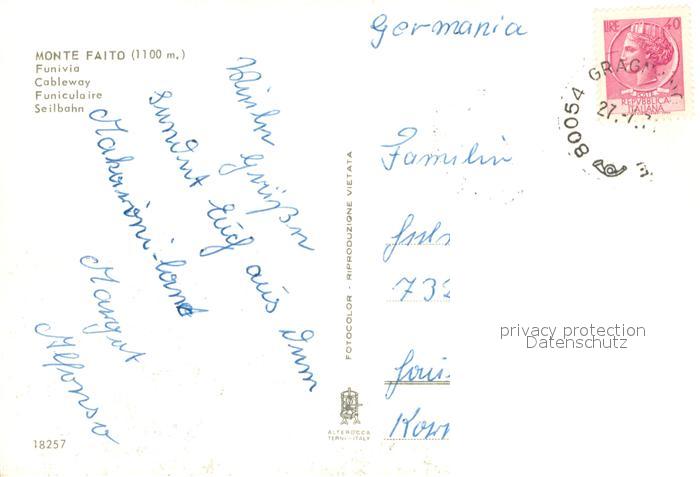 MONTE FAITO (1100 m.)
Funivia
Cableway
Funiculaire
Seilbahn
Viele Grüße
sendet Euch aus dem
Makaroni-land
Margut
Alfonso
18257
FOTOCOLOR - RIPRODUZIONE VIETATA
ALTEROCCA
TERNI - ITALY
Germania
LIRE 40
POSTE
REPVBBLICA
ITALIANA
80054 GRAGNANO
27.
Familie
732
privacy protection
Datenschutz